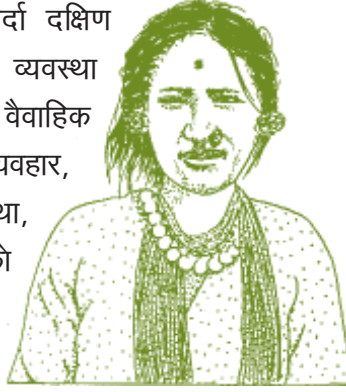 र्दा दक्षिण
व्यवस्था
वैवाहिक
यवहार,
था,